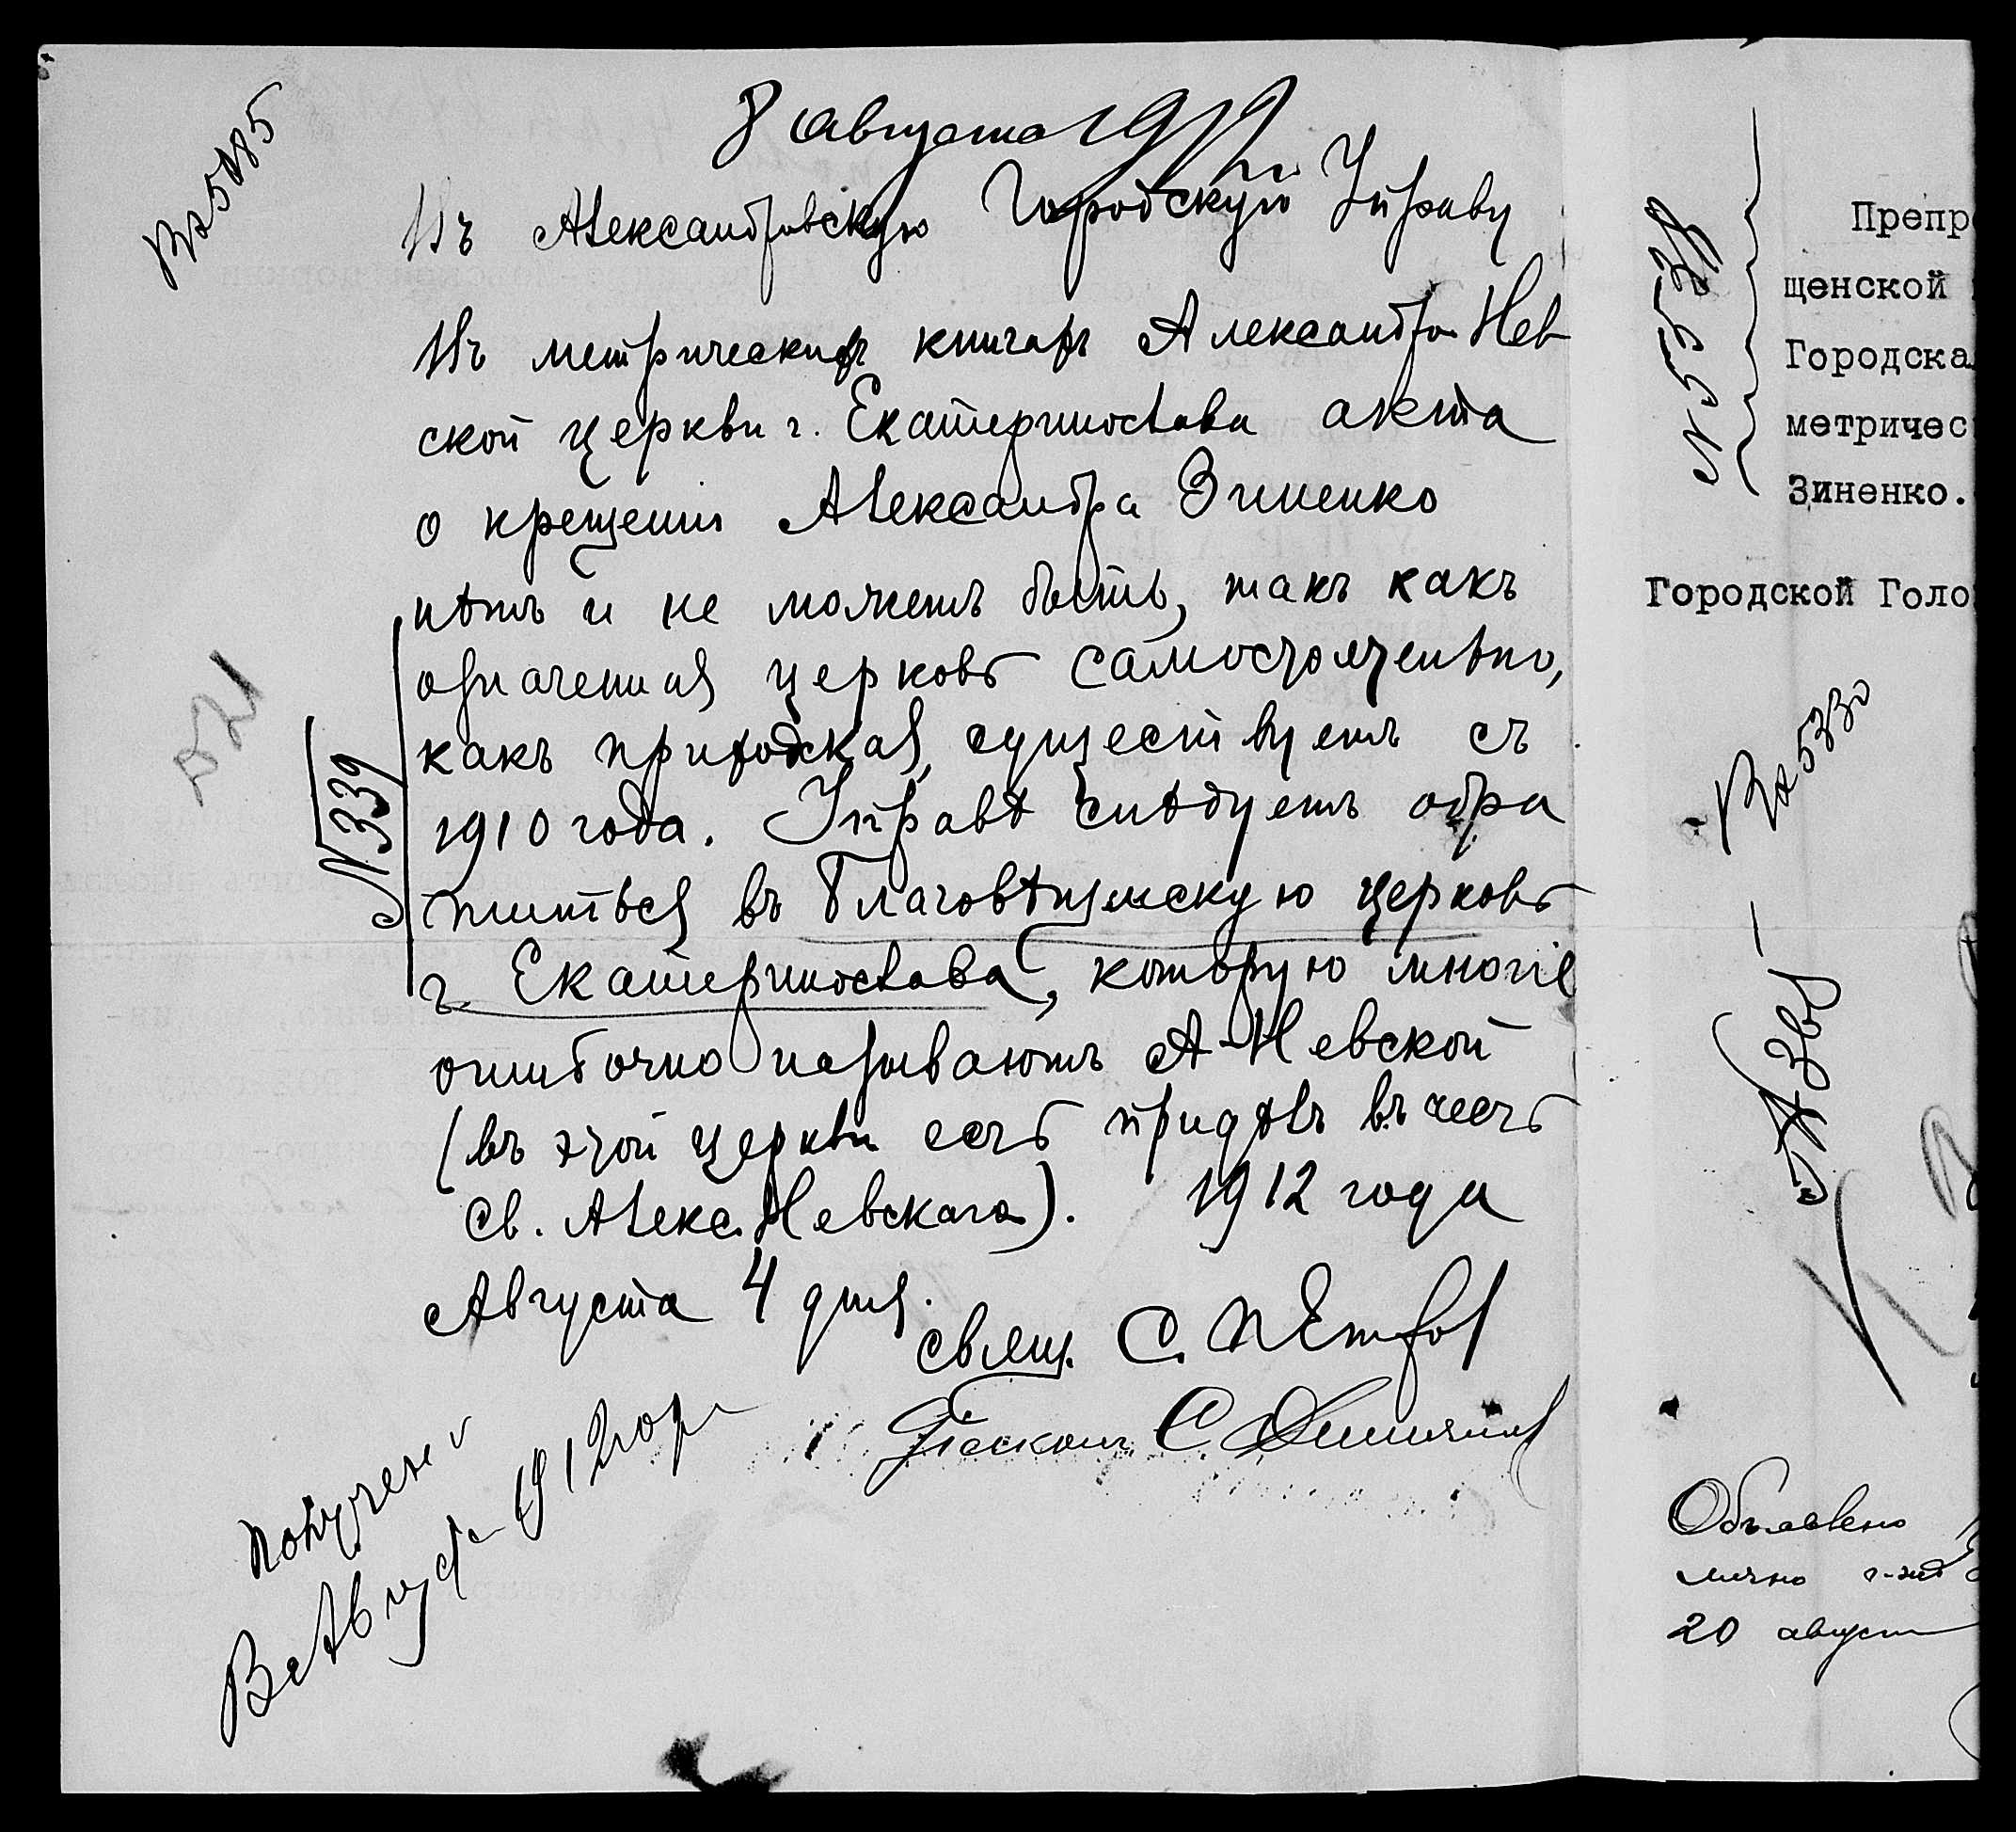 Вх 5185
8 августа 1912
Въ Александровскую Городскую Управу
Въ метрическихъ книгахъ Александро-Нев
ской церкви г. Екатеринослава акта
о крещеніи Александра Зиненко
нѣтъ и не можетъ быть, такъ какъ
означенная церковь самостоятельно,
какъ приходская, существуетъ съ
1910 года. Управѣ слѣдуетъ обра
титься въ Благовѣщенскую церковь
г. Екатеринослава, которую многіе
ошибочно называютъ А-Невской
(въ этой церкви есть придѣлъ въ честь
Св. Алекс. Невскаго). 1912 года
Августа 4 дня.
свящ. С. Петров
Псаломщ. С.
№ 339
521
Получен
8 Августа 1912 года
№ 5538
Препр
щенской
Городска
метричес
Зиненко.
Городской Голо
Вх 5330
Объявлено
лично г-жѣ
20 август